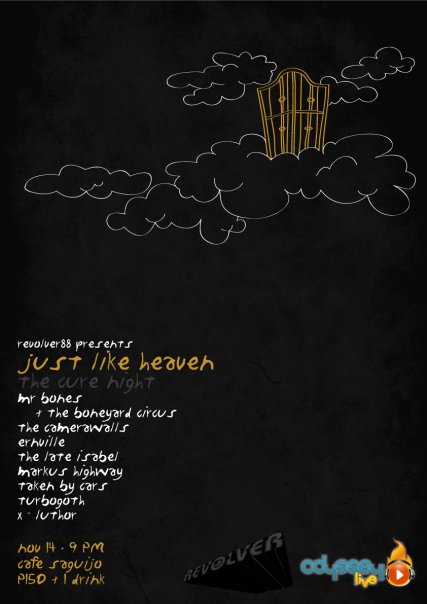 revolver88 presents
just like heaven
the cure night
mr bones
+ the boneyard circus
the camerawalls
ernville
the late isabel
markus highway
taken by cars
turbogoth
x - luthor
nov 14 • 9 PM
cafe saguijo
P150 + 1 drink
REVOLVER
odyssey
live